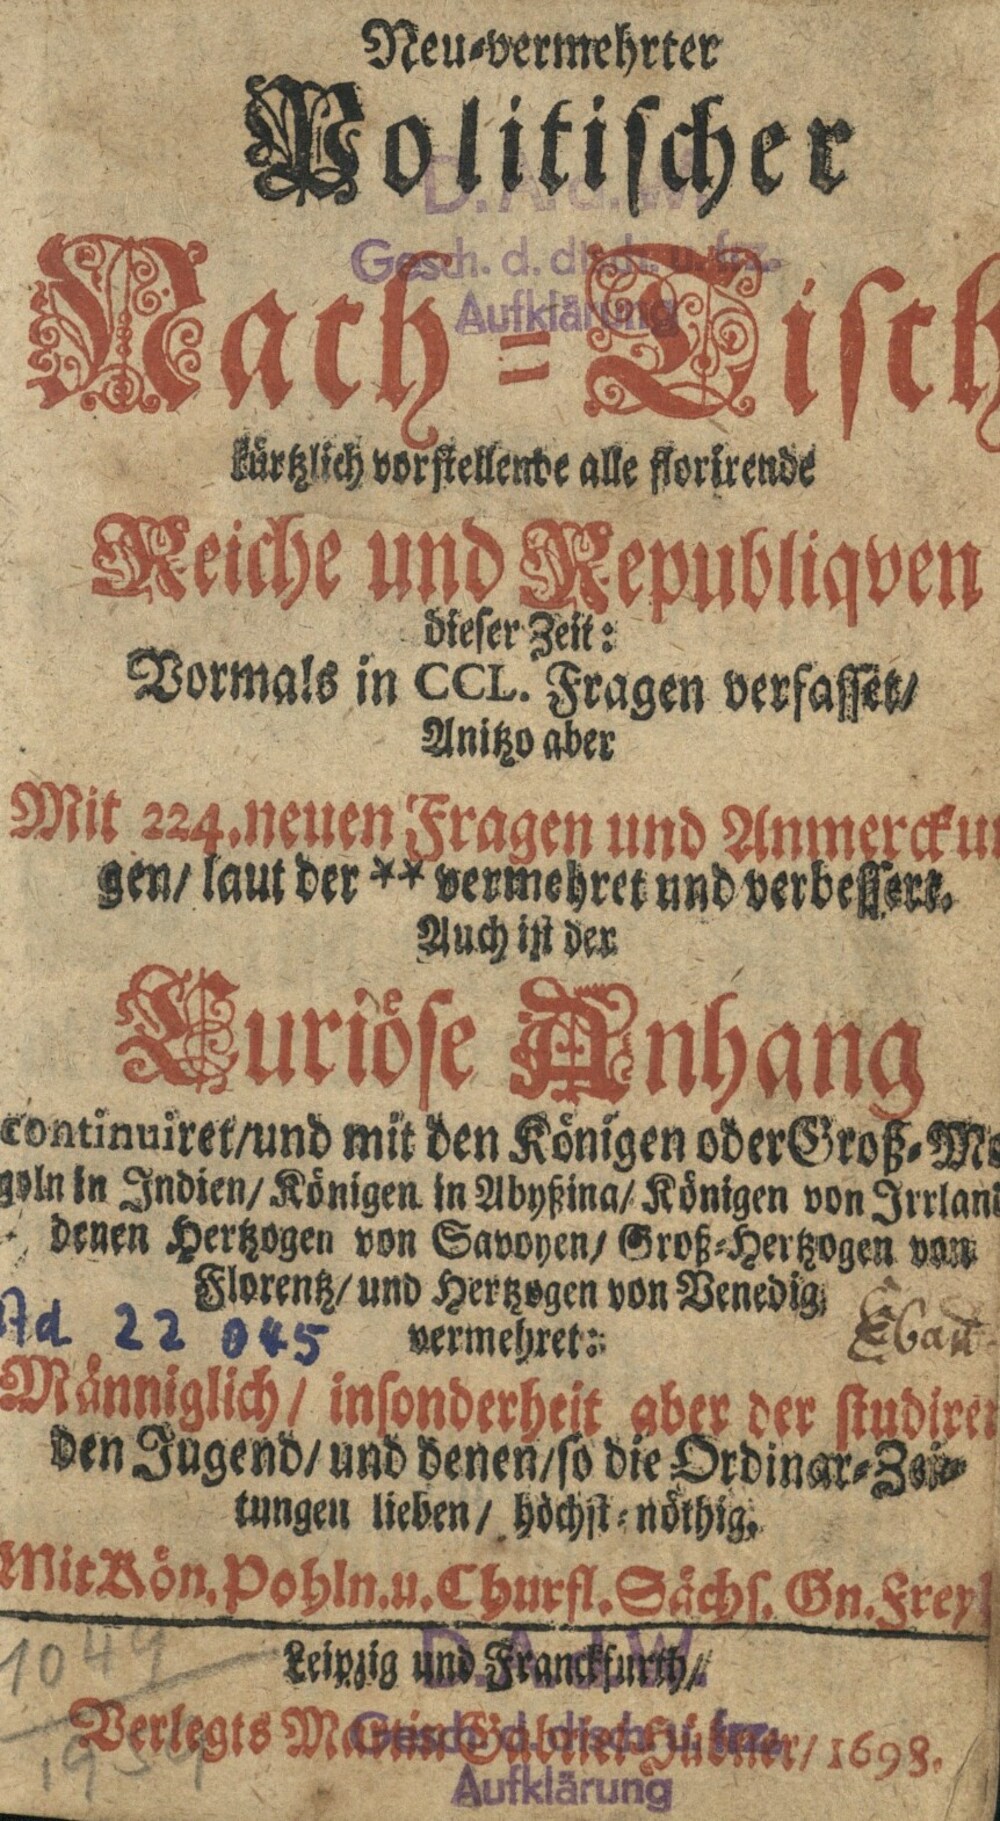 Neu-vermehrter
Politischer
D. A. d. W.
Gesch. d. dtsch. u. frz.
Aufklärung
Nach-Tisch
kürtzlich vorstellende alle florirende
Reiche und Republiqven
dieser Zeit:
Vormals in CCL. Fragen verfasset/
Anitzo aber
Mit 224. neuen Fragen und Anmerckun
gen/ laut der ** vermehret und verbessert.
Auch ist der
Curiöse Anhang
continuiret/und mit den Königen oder Groß-Mo
goln in Indien/ Königen in Abyßina/ Königen von Irrland
denen Hertzogen von Savoyen/ Groß-Hertzogen von
Florentz/ und Hertzogen von Venedig,
Ad 22 045
vermehret:
Männiglich/ insonderheit aber der studiren
den Jugend/ und denen/so die Ordinar-Zei-
tungen lieben/ höchst-nöthig.
Mit Kön. Pohln. u. Churfl. Sächs. Gn. Frey
1049
Leipzig und Franckfurth/
D. A. d. W.
Verlegts Martin Gabriel Hübner/ 1698.
Gesch. d. dtsch. u. frz.
Aufklärung